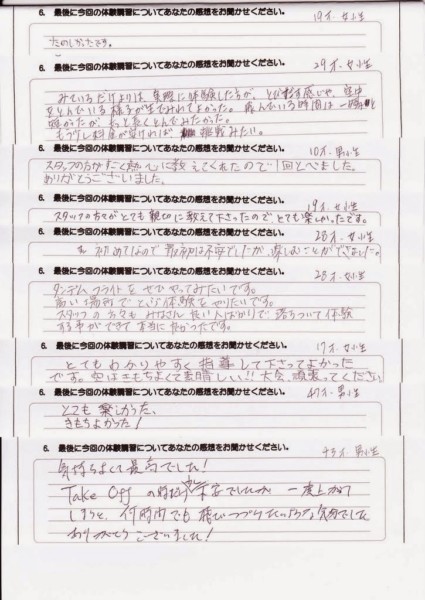 6. 最後に今回の体験講習についてあなたの感想をお聞かせください。 19才・女性
たのしかったです。
6. 最後に今回の体験講習についてあなたの感想をお聞かせください。 29才・女性
みているだけよりは、実際に体験した方が、とび出す感じや、空中
をとんでいる様子が生でみれてよかった。飛んでいる時間は一瞬と
短かったが、もっと長くとんでみたかった。
もう少し料金が安ければ 挑戦みたい。
6. 最後に今回の体験講習についてあなたの感想をお聞かせください。 10才・男性
スタッフの方がよく熱心に教えてくれたので1回とべました。
ありがとうございました。
6. 最後に今回の体験講習についてあなたの感想をお聞かせください。 19才・女性
スタッフの方々がとても親切に教えて下さったのでとても楽しかったです。
6. 最後に今回の体験講習についてあなたの感想をお聞かせください。 28才・女性
初めてなので最初は不安でしたが、楽しむことができました。
6. 最後に今回の体験講習についてあなたの感想をお聞かせください。 28才・女性
タンデムフライトをぜひやってみたいです。
高い場所でとぶ体験をやりたいです。
スタッフの方々もみなさん良い人ばかりで落ちついて体験
する事ができて本当に良かったです。
6. 最後に今回の体験講習についてあなたの感想をお聞かせください。 17才・女性
とてもわかりやすく指導して下さってよかった
です。空はきもちよくて素晴しい!!大会、頑張ってください
6. 最後に今回の体験講習についてあなたの感想をお聞かせください。 47才・男性
とても楽しかった、
きもちよかった!
6. 最後に今回の体験講習についてあなたの感想をお聞かせください。 才・男性
気持ちよくて最高でした!
Take Offの時は少し不安でしたが 一度上がって
しまうと、何時間でも飛びつづけたいような気分でした
ありがとうございました!